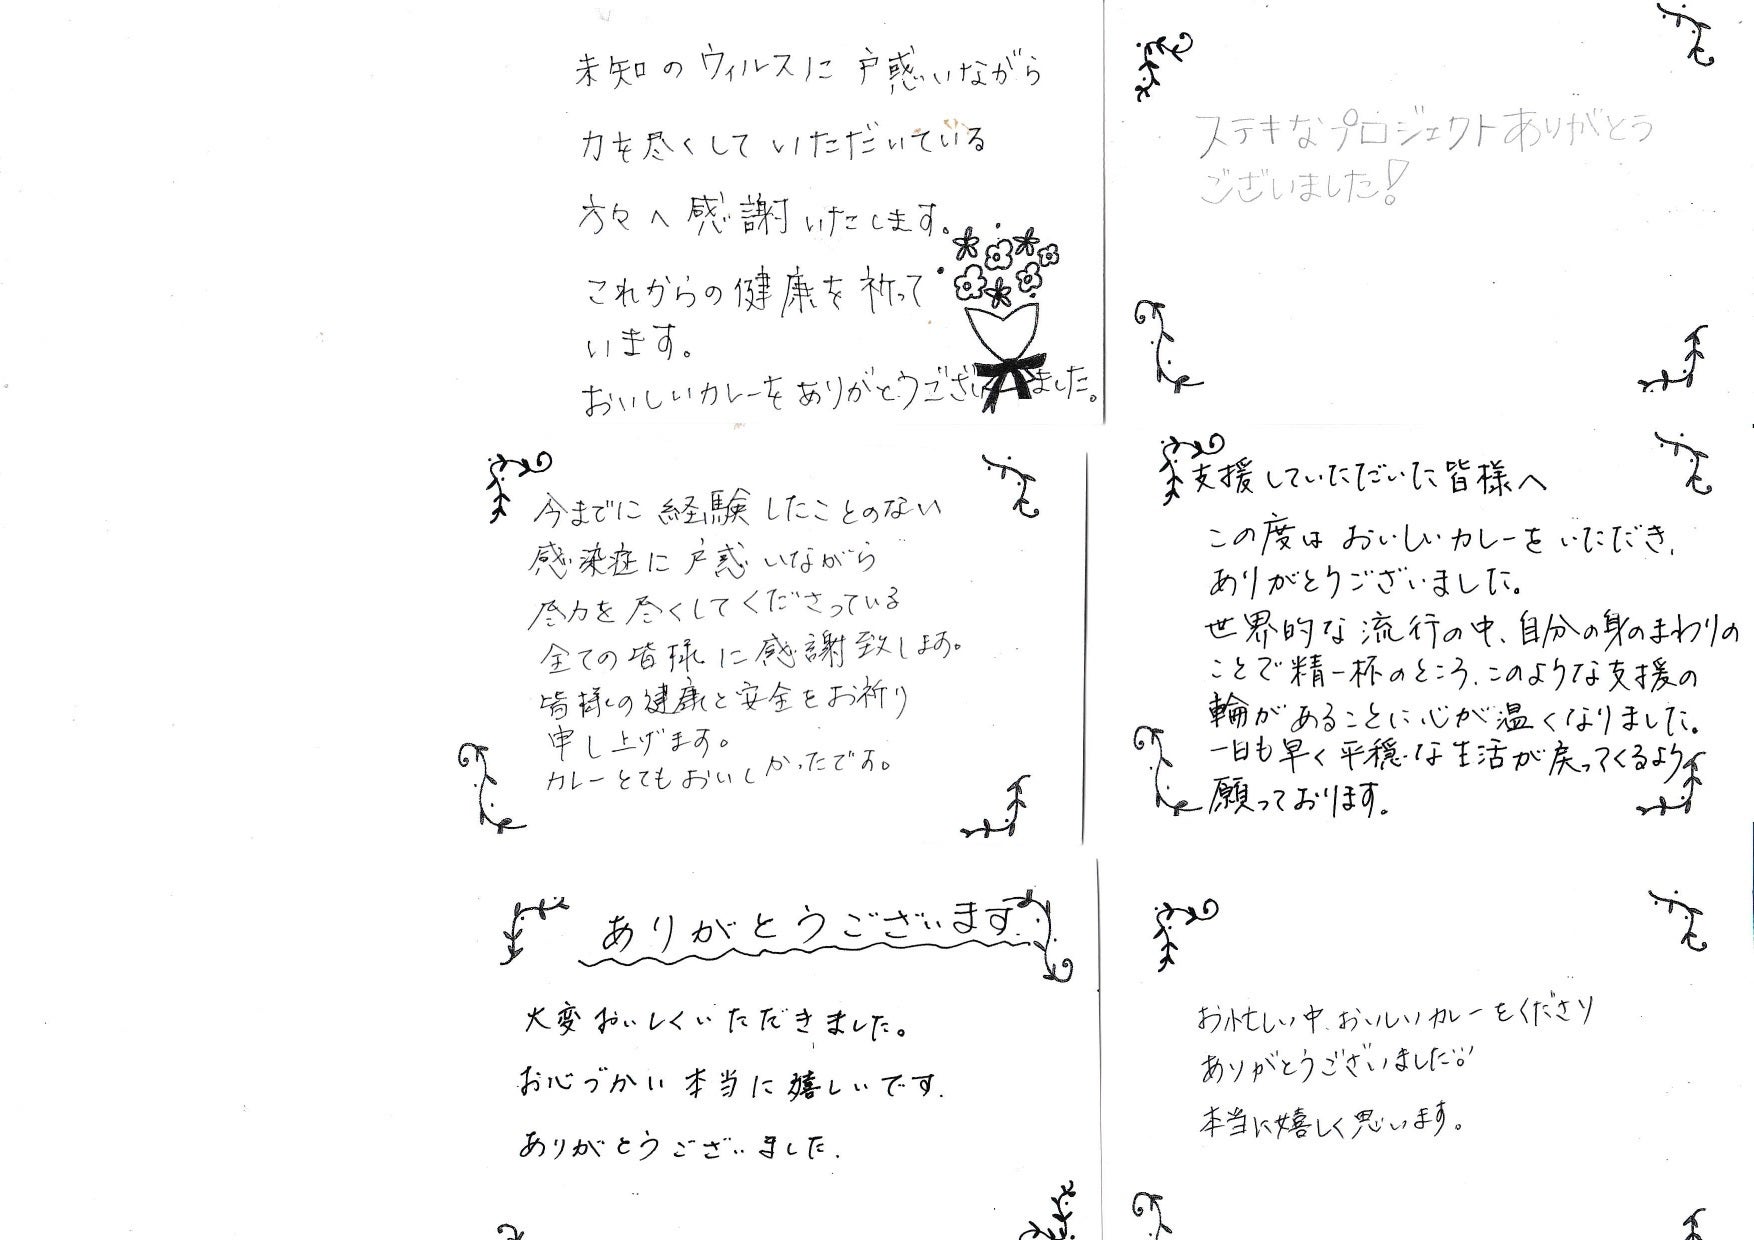 未知のウィルスに戸惑いながら
力を尽くしていただいている
方々へ感謝いたします。
これからの健康を祈って
います。
おいしいカレーをありがとうございました。
ステキなプロジェクトありがとう
ございました!
今までに経験したことのない
感染症に戸惑いながら
尽力を尽くしてくださっている
全ての皆様に感謝致します。
皆様の健康と安全をお祈り
申し上げます。
カレーとてもおいしかったです。
支援していただいた皆様へ
この度はおいしいカレーをいただき、
ありがとうございました。
世界的な流行の中、自分の身のまわりの
ことで精一杯のところ、このような支援の
輪があることに心が温くなりました。
一日も早く平穏な生活が戻ってくるよう
願っております。
ありがとうございます.
大変おいしくいただきました。
お心づかい本当に嬉しいです.
ありがとうございました.
お忙しい中、おいしいカレーをくださり
ありがとうございました
本当に嬉しく思います。